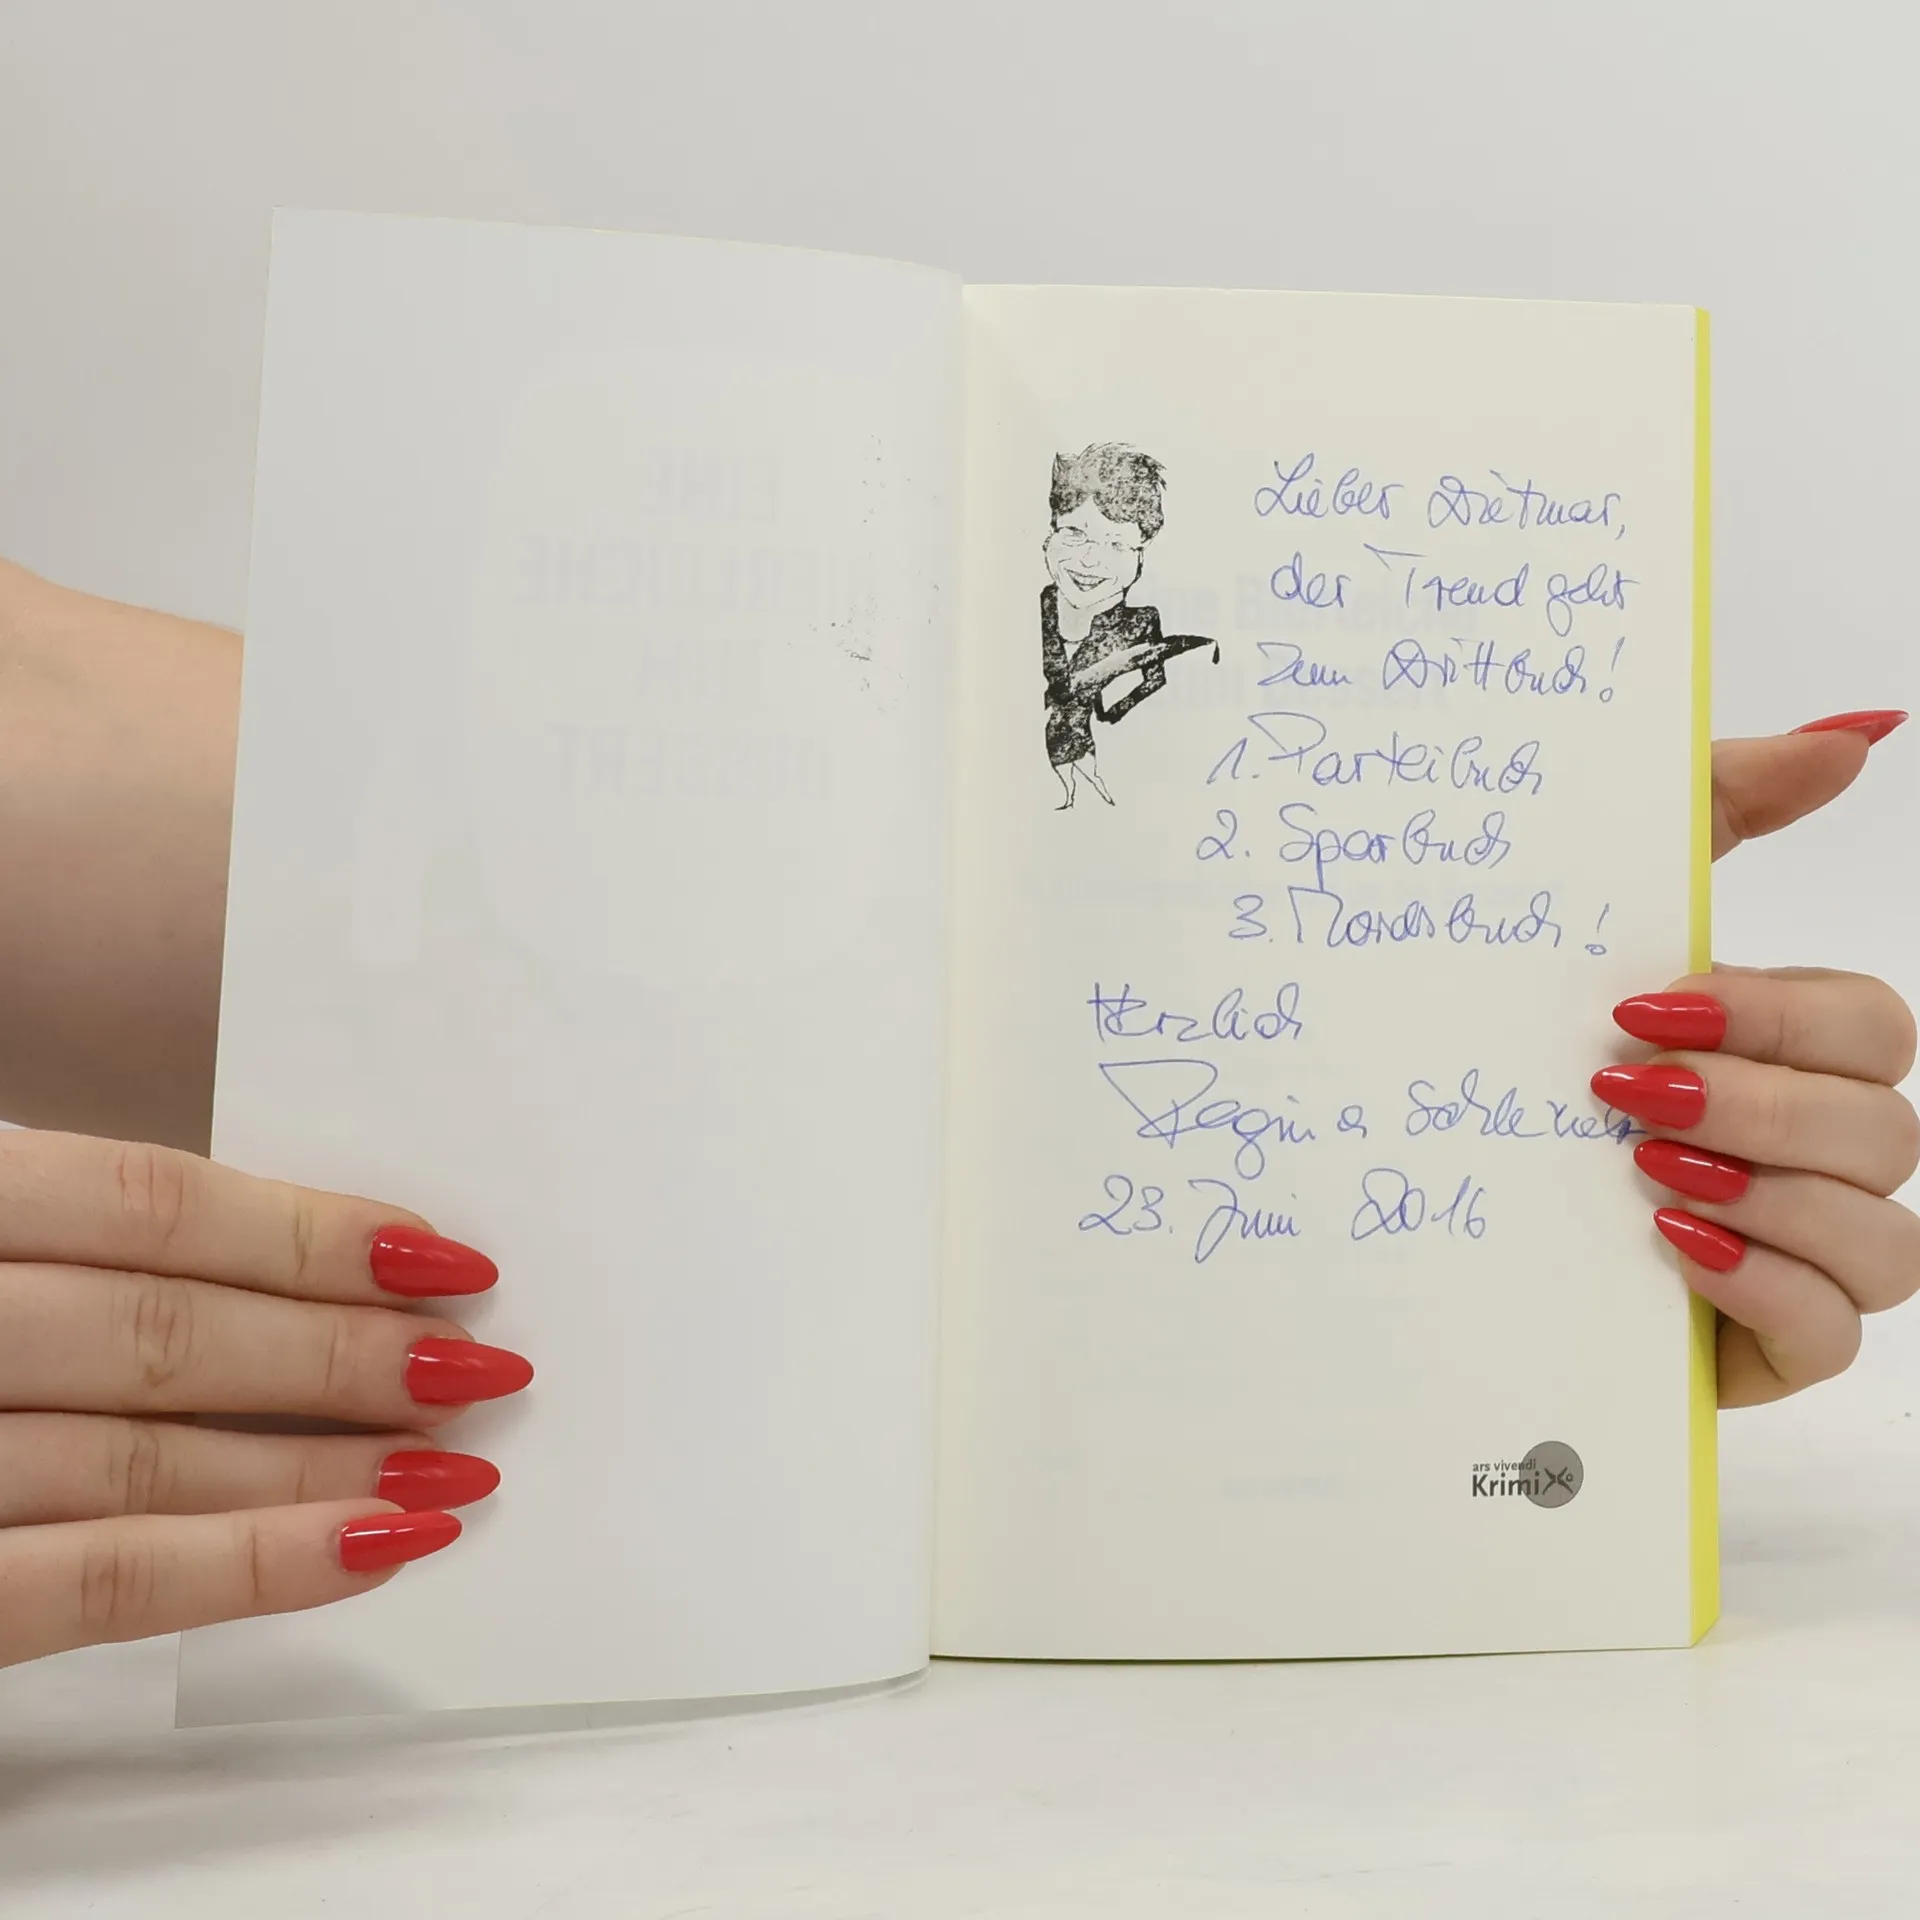 Lieber Dietmar,
der Trend geht
zum Drittbuch!
1. Parteibuch
2. Sparbuch
3. Mordsbuch!
Herzlich
Regina
23. Juni 2016
ars vivendi
Krimi